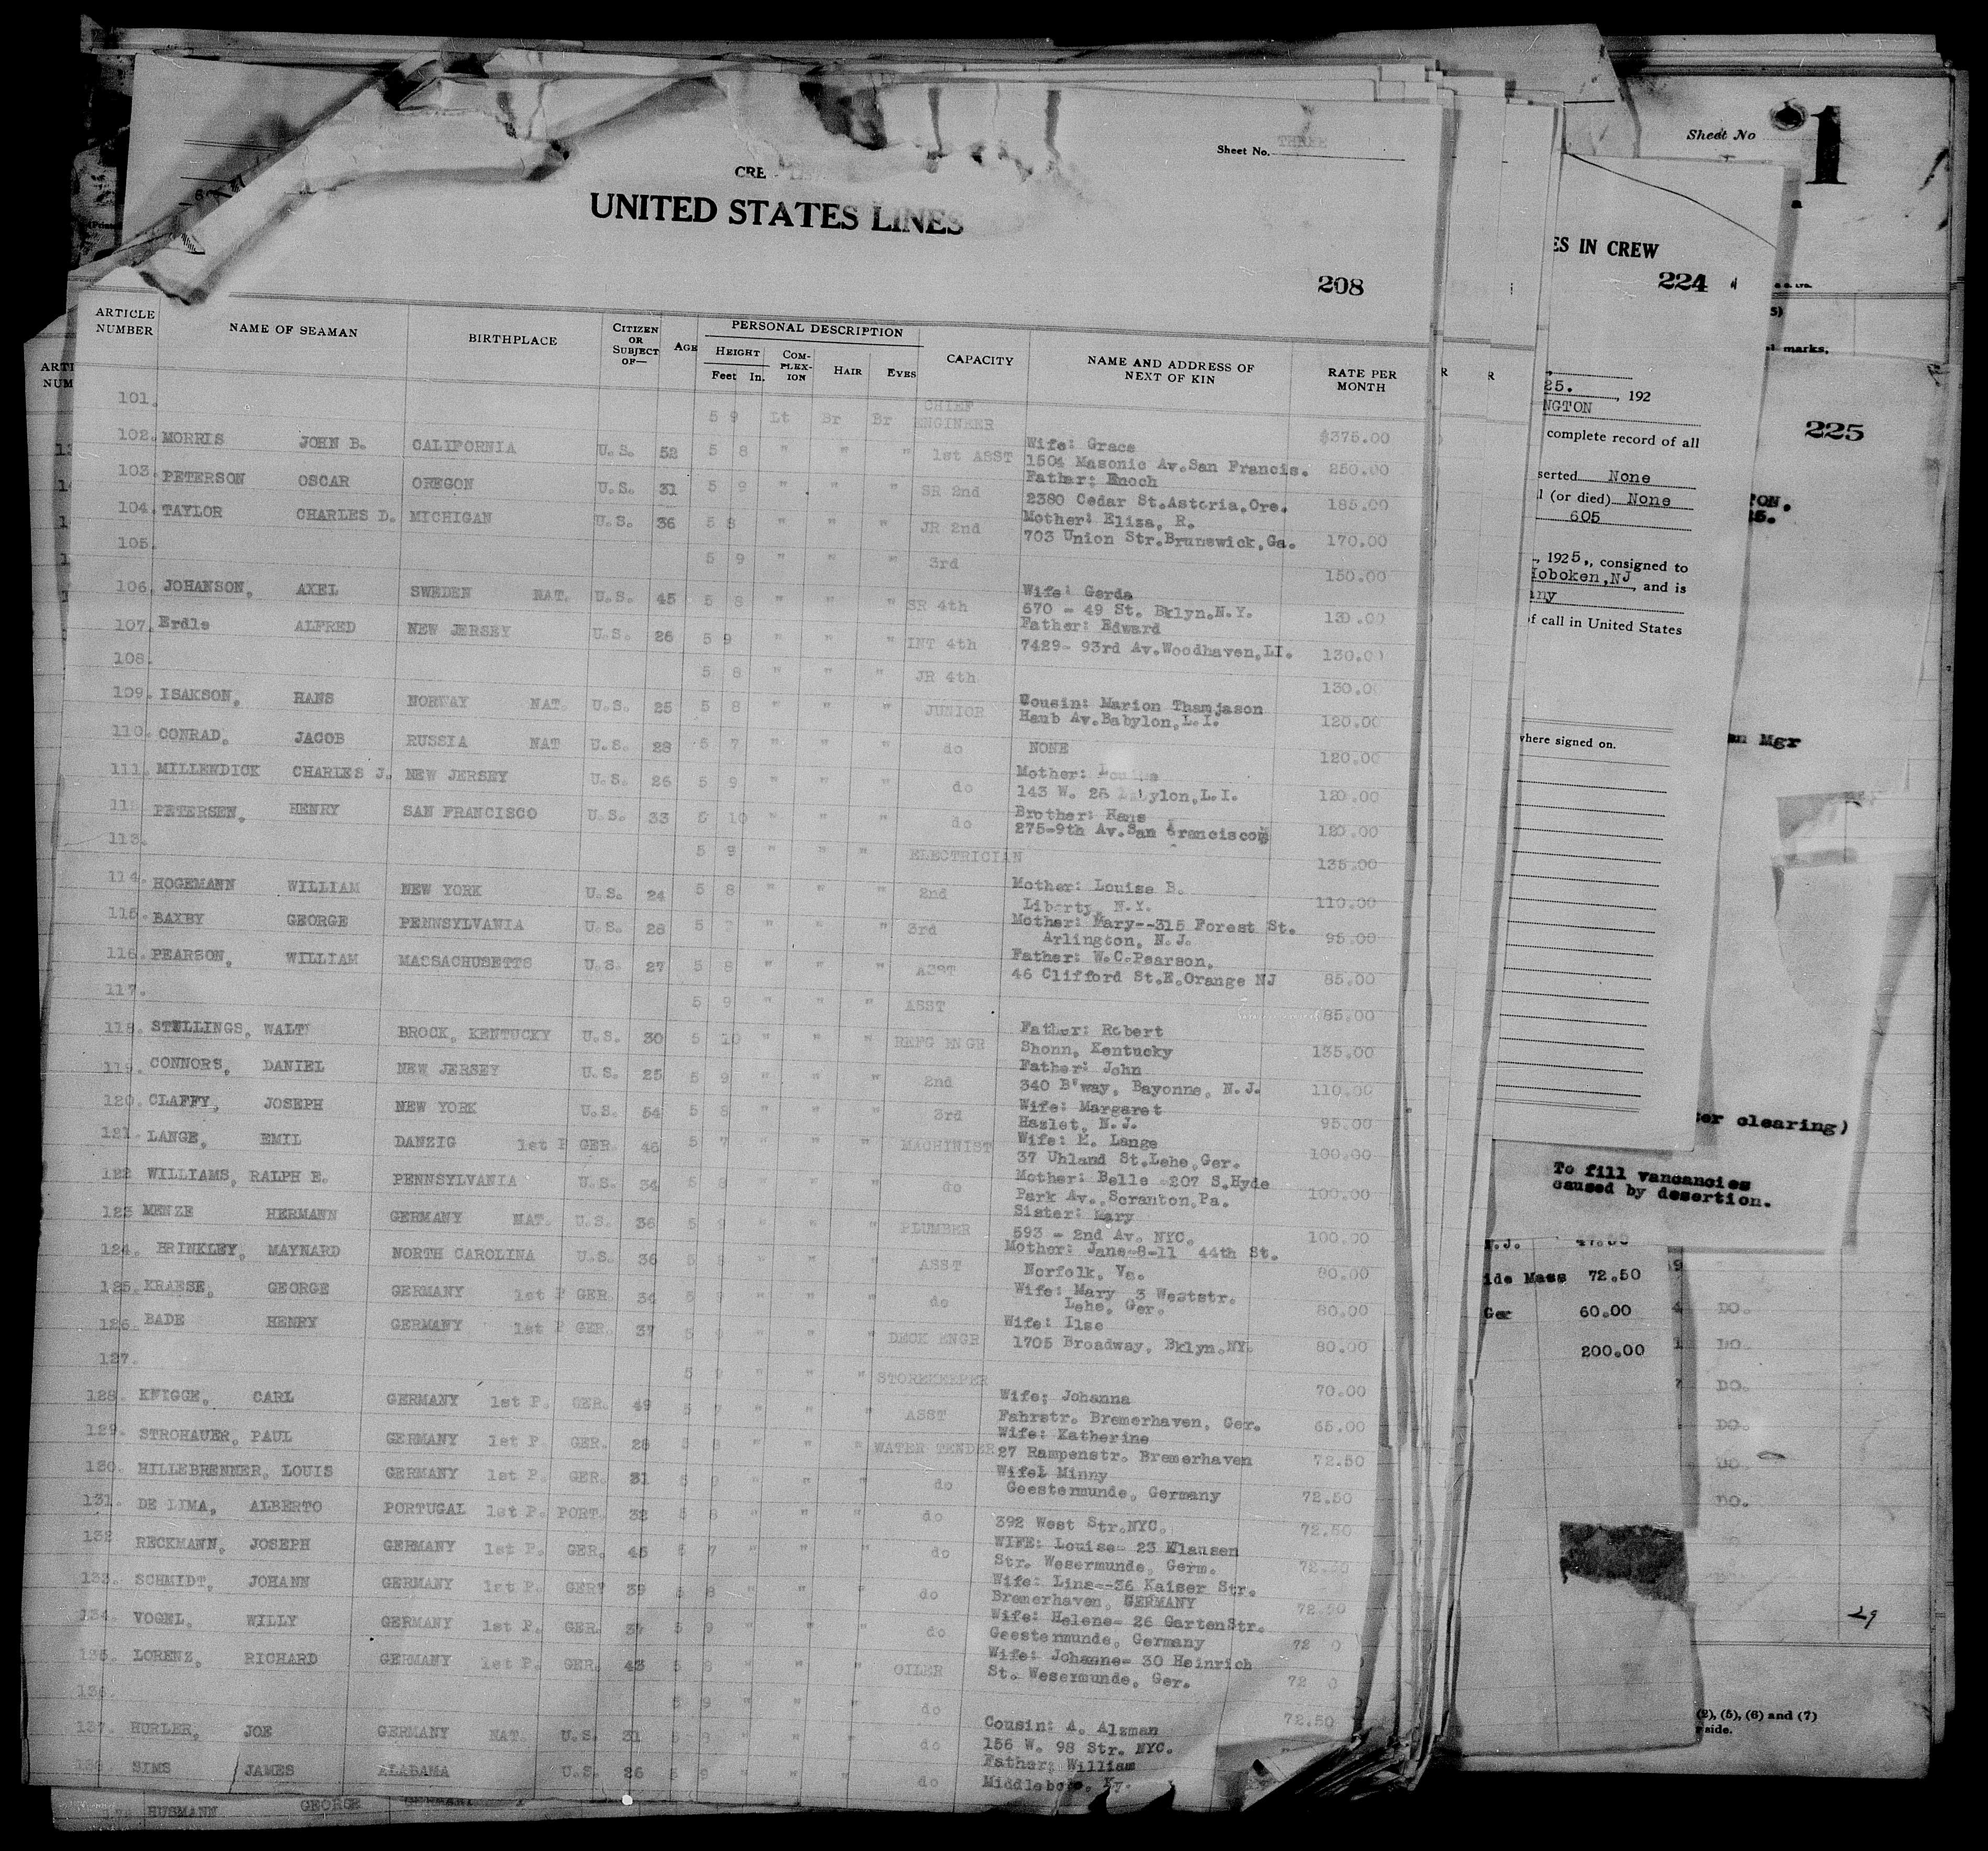 Sheet No. THREE
CRE
UNITED STATES LINES
208
ARTICLE NUMBER NAME OF SEAMAN BIRTHPLACE CITIZEN OR SUBJECT OF— AGE PERSONAL DESCRIPTION HEIGHT Feet In. COM-PLEX-ION HAIR EYES CAPACITY NAME AND ADDRESS OF NEXT OF KIN RATE PER MONTH
101. 5 9 Lt Br Br CHIEF ENGINEER $375.00
102. MORRIS JOHN B. CALIFORNIA U.S. 52 5 8 " " " 1st ASST Wife: Grace
1504 Masonic Av.San Francis. 250.00
103. PETERSON OSCAR OREGON U.S. 31 5 9 " " " SR 2nd Father: Enoch
2380 Cedar St.Astoria,Ore. 185.00
104. TAYLOR CHARLES D. MICHIGAN U.S. 36 5 8 " " " JR 2nd Mother: Eliza, R.
703 Union Str.Brunswick,Ga. 170.00
105. 5 9 " " " 3rd 150.00
106. JOHANSON, AXEL SWEDEN NAT. U.S. 45 5 8 " " " SR 4th Wife: Gerda
670 - 49 St. Bklyn.N.Y. 130.00
107. Erdle ALFRED NEW JERSEY U.S. 26 5 9 " " " INT 4th Father: Edward
7429- 93rd Av.Woodhaven,LI. 130.00
108. 5 8 " " " JR 4th 130.0
109. ISAKSON, HANS NORWAY NAT. U.S. 25 5 8 " " " JUNIOR Cousin: Marion Thamjason
Haub Av.Babylon,L.I. 120.00
110. CONRAD, JACOB RUSSIA NAT U.S. 28 5 7 " " " do NONE 120.00
111. MILLENDICK CHARLES J. NEW JERSEY U.S. 26 5 9 " " " do Mother:
143 W. 28 ylon,L.I. 120.00
11 PETERSEN, HENRY SAN FRANCISCO U.S. 33 5 10 " " " do Brother: Hans
275-9th Av.San Franciscom 120.00
113. 5 8 " " " ELECTRICIAN 135.00
114. HOGEMANN WILLIAM NEW YORK U.S. 24 5 8 " " " 2nd Mother: Louise B.
Liberty, N.Y. 110.00
115. BAXBY GEORGE PENNSYLVANIA U.S. 28 5 7 " " " 3rd Mother: Mary--315 Forest St.
Arlington, N.J. 95.00
116. PEARSON, WILLIAM MASSACHUSETTS U.S. 27 5 8 " " " ASST Father: W.C.Pearson,
46 Clifford St.E.Orange NJ 85.00
117. 5 9 " " " ASST 85.00
118. STULLINGS, WALT BROCK, KENTUCKY U.S. 30 5 10 " " " REFG ENGR Father: Robert
Shonn, Kentucky 135.00
119. CONNORS, DANIEL NEW JERSEY U.S. 25 5 9 " " " 2nd Father: John
340 B'way, Bayonne, N.J. 110.00
120. CLAFFY, JOSEPH NEW YORK U.S. 54 5 8 " " " 3rd Wife: Margaret
Hazlet, N.J. 95.00
121. LANGE, EMIL DANZIG 1st P GER. 46 5 7 " " " MACHINIST Wife: M. Lange
37 Uhland St.Lehe,Ger. 100.00
122 WILLIAMS, RALPH E. PENNSYLVANIA U.S. 34 5 8 " " " do Mother: Belle -207 S.Hyde
Park Av., Scranton,Pa. 100.00
123 MENZE HERMANN GERMANY NAT. U.S. 36 5 9 " " " PLUMBER Sister: Mary
593 - 2nd Av. NYC. 100.00
124. BRINKLEY, MAYNARD NORTH CAROLINA U.S. 36 5 8 " " " ASST Mother: Jane-8-11 44th St.
Norfolk, Va. 80.00
125. KRAESE, GEORGE GERMANY 1st P GER. 34 5 9 " " " do Wife: Mary 3 Weststr.
Lehe, Ger. 80.00
126. BADE HENRY GERMANY 1st P GER. 37 5 9 " " " DECK ENGR Wife: Ilse
1705 Broadway, Bklyn.NY. 80.00
127. 5 9 " " " STOREKEEPER 70.00
128. KNIGGE, CARL GERMANY 1st P. GER. 49 5 7 " " " ASST Wife; Johanna
Fahrstr. Bremerhaven, Ger. 65.00
129. STROHAUER, PAUL GERMANY 1st P. GER. 28 5 8 " " " WATER TENDER Wife: Katherine
27 Rampenstr. Bremerhaven 72.50
130. HILLEBRENNER, LOUIS GERMANY 1st P. GER. 31 5 9 " " " do Wife: Minny
Geestermunde, Germany 72.50
131. DE LIMA, ALBERTO PORTUGAL 1st P. PORT. 32 5 8 " " " do 392 West Str.NYC. 72.50
132 RECKMANN, JOSEPH GERMANY 1st P. GER. 45 5 7 " " " do WIFE: Louise- 23 Klausen
Str. Wesermunde, Germ. 72.50
133. SCHMIDT, JOHANN GERMANY 1st P. GER? 39 5 8 " " " do Wife: Lina--36 Kaiser Str.
Bremerhaven, GERMANY 72.50
134. VOGEL, WILLY GERMANY 1st P. GER. 37 5 9 " " " do Wife: Helene- 26 GartenStr.
Geestermunde, Germany 72 0
135. LORENZ, RICHARD GERMANY 1st P. GER. 43 5 8 " " " OILER Wife: Johanne- 30 Heinrich
St. Wesermunde, Ger. 72 0
136. 5 9 " " " do 72.50
137. HURLER, JOE GERMANY NAT. U.S. 31 5 8 " " " do Cousin: A. Alzman
156 W. 98 Str. NYC.
138. SIMS JAMES ALABAMA U.S. 26 5 9 " " " do Father: William
Middleboro, Ky.
HUSMANN GEORGE GERMANY
Sheet No 1
ES IN CREW
224
25. , 192
NGTON
complete record of all
serted None
l (or died) None
605
, 1925,, consigned to
Hoboken,NJ , and is
any
of call in United States
where signed on.
marks,
225
TON.
25.
an Mgr
er clearing)
To fill vancancies
caused by desertion.
N.J. 47.50
ide Mass 72.50
Ger 60.00
200.00
DO.
DO.
DO.
DO.
DO.
DO.
29
(2), (5), (6) and (7)
side.